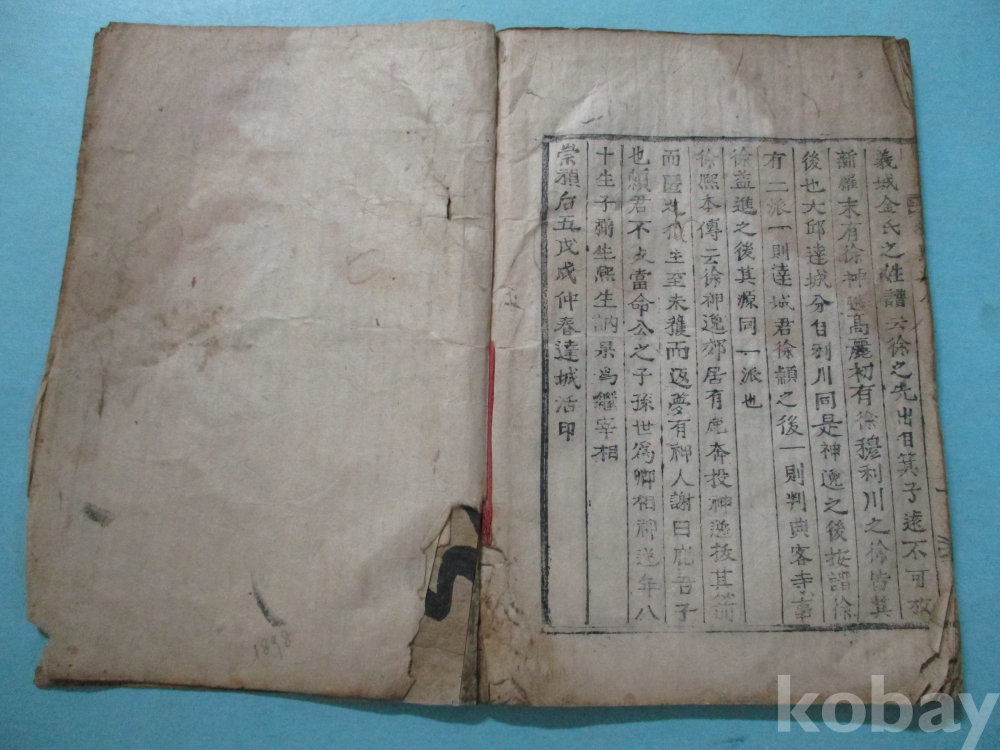 義城金氏之姓譜云徐之先出自箕子遠不可攷
新羅末有徐神逸高麗初有徐穆利川之徐皆其
後也大邱達城分自利川同是神逸之後按譜徐
有二派一則達城君徐顗之後一則判典客寺事
徐益進之後其源同一派也
徐熙本傳云徐神逸郊居有鹿奔投神逸拔其箭
而匿之獵生至未獲而返夢有神人謝曰鹿吾子
也賴君不死當命公之子孫世爲卿相神逸年八
十生子弼生熙生訥果爲繼宰相
崇禎后五戊戌仲春達城活印
1898
kobay